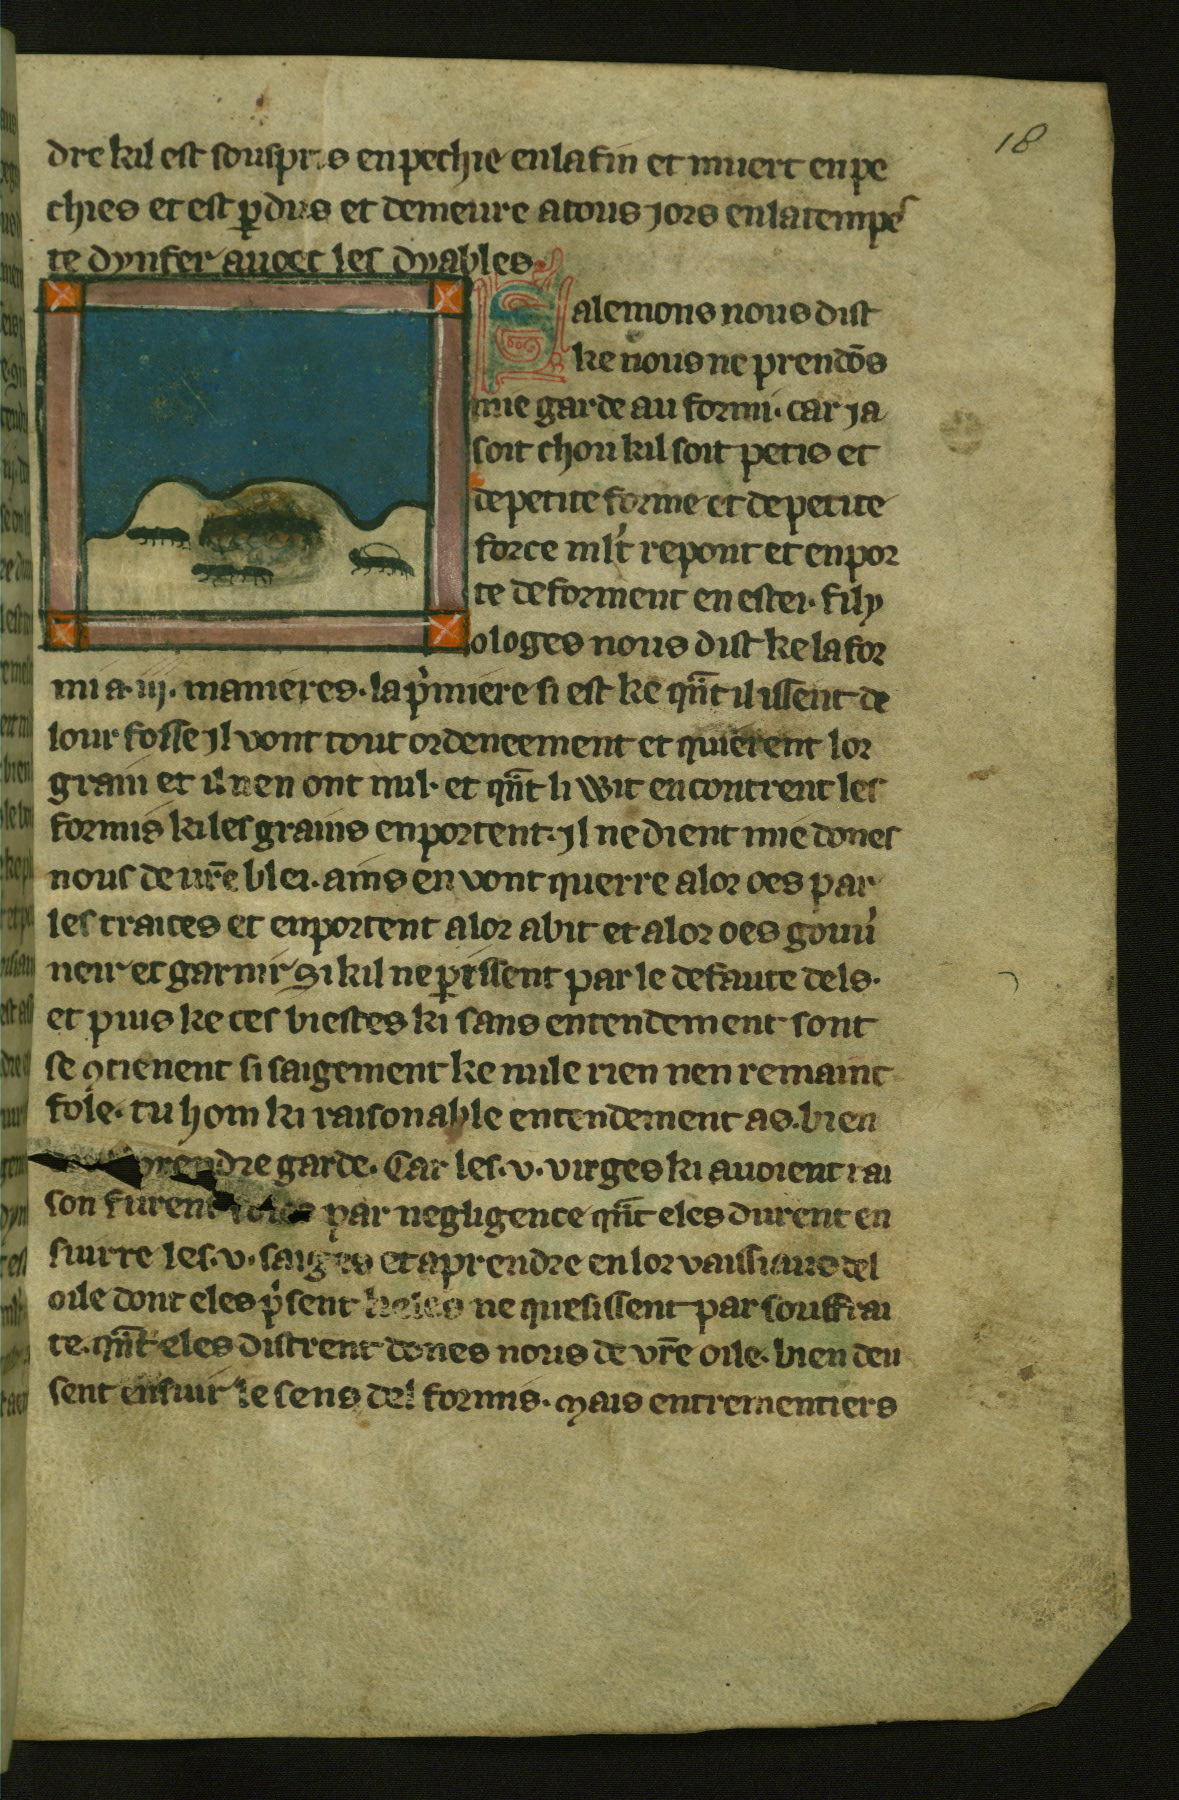 18
dre kil est souspris en pechie en la fin et muert en pe
chies et est ꝑdus et demeure a tous jors en la tempeˢ
te dynfer avoec les dyables.
Salemons nous dist
ke nous ne prendōs
mie garde au formi. car ja
soit chou kil soit petis et
de petite forme et de petite
force ml't repont et enpor
te de forment en estei. filȳ
ologes nous dist ke la for
mi a .iij. manieres. la p'miere si est ke qn̄t il issent de
lour fosse Il vont tout ordeneement et quierent lor
grain et il nen ont nul. et qn̄t li wit encontrent les
formis ki les grains enportent. Il ne dient mie dones
nous de vr̄e blei. ains en vont querre a lor oes par
les traices et enportent a lor abit et a lor oes gouv'
neir et garnir Si kil ne ꝑissent par le defaute dels.
et puis ke ces biestes ki sans entendement sont
se ꝯtienent si saigement ke nule rien nen remaint
fole. tu hom ki raisonable entendement as. bien
prendre garde. Car les .v. virges ki avoient rai
son furent foles par negligence qn̄t eles durent en
suirre les .v. saiges et aprendre en lor vaissiaus del
oile dont eles p'sent keles ne quesissent par souffrai
te. qn̄t eles distrent dones nous de vr̄e oile. bien deu
sent ensuir le sens del formis. Mais entrementiers